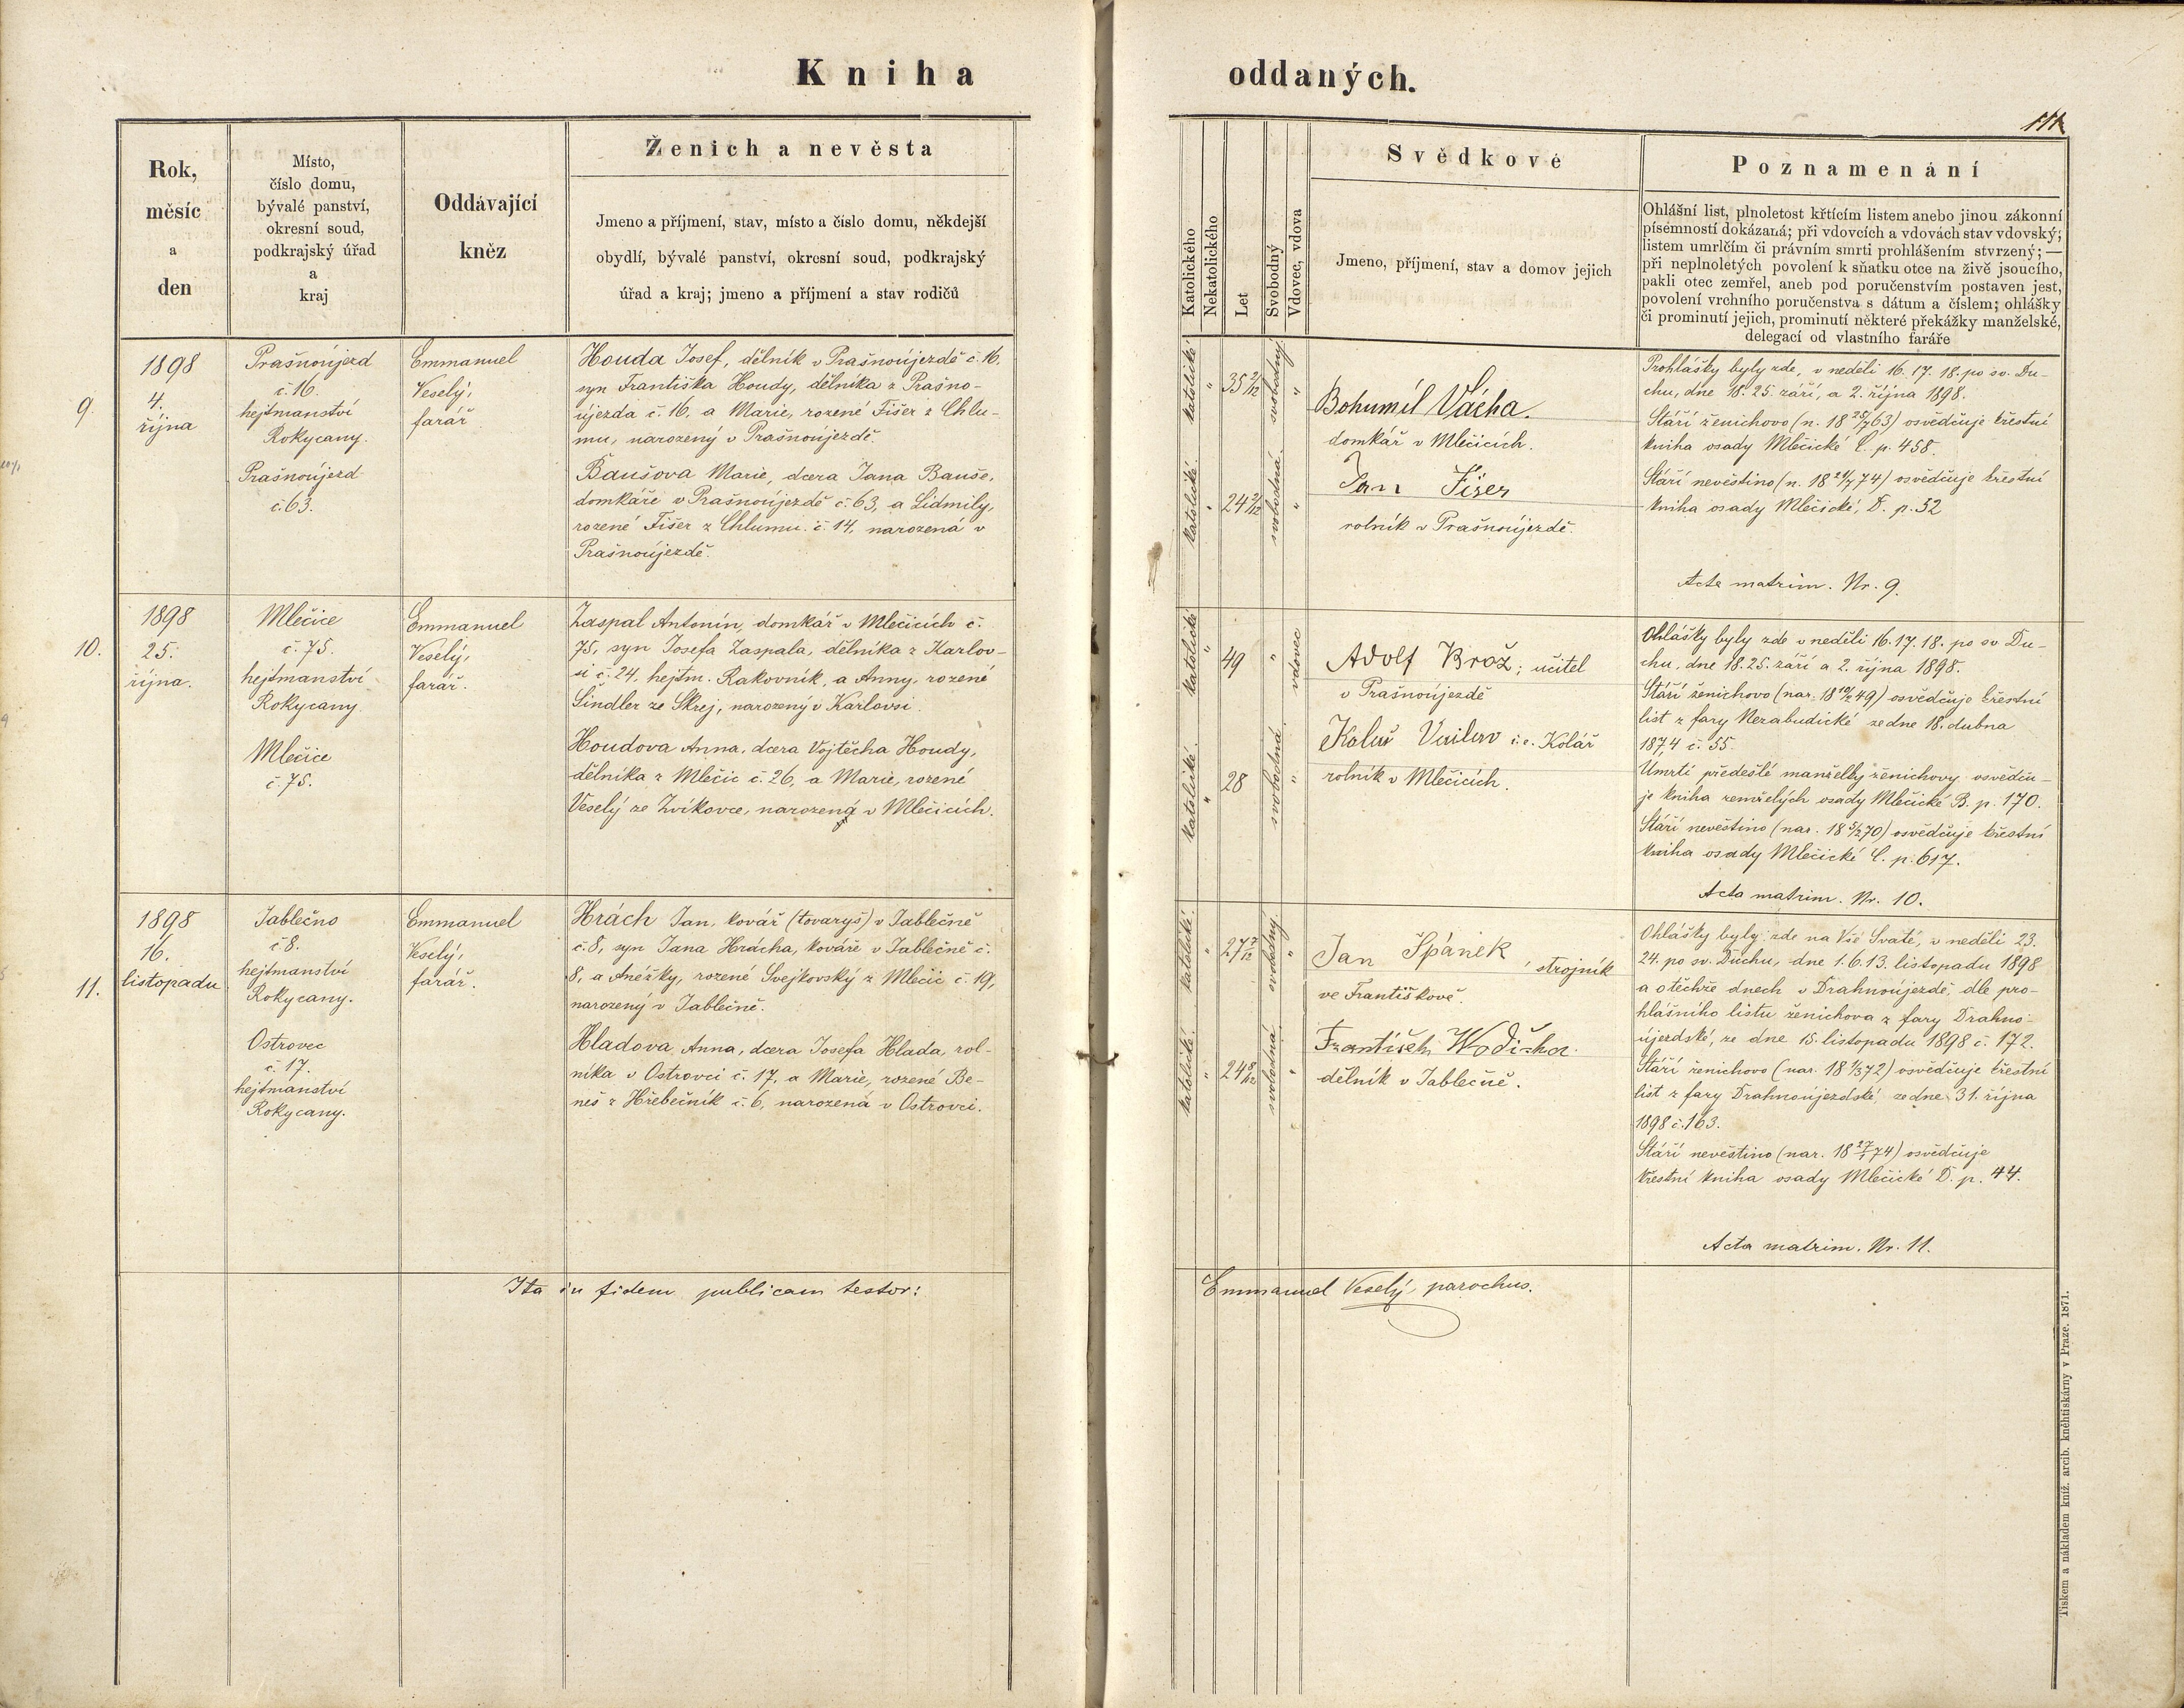 Kniha oddaných.
111
Rok,
měsíc
a
den
Místo,
číslo domu,
bývalé panství,
okresní soud,
podkrajský úřad
a
kraj
Oddávající
kněz
Ženich a nevěsta
Jmeno a příjmení, stav, místo a číslo domu, někdejší
obydlí, bývalé panství, okresní soud, podkrajský
úřad a kraj; jmeno a příjmení a stav rodičů
Katolického
Nekatolického
Let
Svobodný
Vdovec, vdova
Svědkové
Jmeno, příjmení, stav a domov jejich
Poznamenání
Ohlášní list, plnoletost křticím listem anebo jinou zákonní
písemností dokázaná; při vdovcích a vdovách stav vdovský;
listem umrlčím či právním smrti prohlášením stvrzený; —
při neplnoletých povolení k sňatku otce na živě jsoucího,
pakli otec zemřel, aneb pod poručenstvím postaven jest,
povolení vrchního poručenstva s dátum a číslem; ohlášky
či prominutí jejich, prominutí některé překážky manželské,
delegací od vlastního faráře
9.
1898
4.
října
Prašnoújezd
č. 16.
hejtmanství
Rokycany.
Prašnoújezd
č. 63.
Emmanuel
Veselý,
farář
Houda Josef, dělník v Prašnoújezdě č. 16,
syn Františka Houdy, dělníka z Prašno-
újezda č. 16, a Marie, rozené Fišer z Chlu-
mu, narozený v Prašnoújezdě.
Baušova Marie, dcera Jana Bauše,
domkáře v Prašnoújezdě č. 63, a Lidmily,
rozené Fišer z Chlumu č. 14, narozená v
Prašnoújezdě.
katolické " 35 2/12 svobodný "
katolické " 24 2/12 svobodná "
Bohumíl Vácha.
domkář v Mlečicích.
Jan Fišer
rolník v Prašnoújezdě.
Prohlášky byly zde, v neděli 16. 17. 18. po sv. Du-
chu, dne 18. 25. září, a 2. října 1898.
Stáří ženichovo (n. 18 25/7 63) osvědčuje křestní
kniha osady Mlečické C. p. 458.
Stáří nevěstino (n. 18 21/7 74) osvědčuje křestní
kniha osady Mlečické, D. p. 52
Acta matrim. Nr. 9.
10.
1898
25.
října.
Mlečice
č. 75.
hejtmanství
Rokycany
Mlečice
č. 75.
Emmanuel
Veselý,
farář.
Zaspal Antonín, domkář v Mlečicích č.
75, syn Josefa Zaspala, dělníka z Karlov-
si č. 24, hejtm. Rakovník, a Anny, rozené
Šindler ze Skrej, narozený v Karlovsi.
Houdova Anna, dcera Vojtěcha Houdy,
dělníka z Mlečic č. 26, a Marie, rozené
Veselý ze Zvíkovce, narozená v Mlečicích.
katolické " 49 " vdovec
katolické " 28 svobodná "
Adolf Brož; učitel
v Prašnoújezdě
i. e. Kolář
rolník v Mlečicích.
Ohlášky byly zde v neděli 16. 17. 18. po sv Du-
chu, dne 18. 25. září a 2. října 1898.
Stáří ženichovo (nar. 18 10/2 49) osvědčuje křestní
list z fary Nezabudické ze dne 18. dubna
1874 č. 55.
Úmrtí předešlé manželky ženichovy osvědču-
je kniha zemřelých osady Mlečické B. p. 170.
Stáří nevěstino (nar. 18 5/2 70) osvědčuje křestní
kniha osady Mlečické C. p. 617.
Acta matrim. Nr. 10.
11.
1898
16.
listopadu
Jablečno
č 8.
hejtmanství
Rokycany.
Ostrovec
č. 17.
hejtmanství
Rokycany.
Emmanuel
Veselý,
farář.
Hrách Jan, kovář (tovaryš) v Jablečně
č. 8, syn Jana Hrácha, kováře v Jablečně č.
8, a Anéžky, rozené Svejkovský z Mlečic č. 19,
narozený v Jablečně.
Hladova Anna, dcera Josefa Hlada, rol-
níka v Ostrovci č. 17, a Marie, rozené Be-
neš z Hřebečník č. 6, narozená v Ostrovci.
katolické " 27 svobodný "
katolické " 24 svobodná "
Jan Špánek, strojník
ve Františkově.
František Wodička
dělník v Jablečně.
Ohlášky byly: zde na Vše Svaté, v neděli 23.
24. po sv. Duchu, dne 1. 6. 13. listopadu 1898
a o těchže dnech v Drahnoújezdě, dle pro-
hlášního listu ženichova z fary Drahno-
újezdské, ze dne 15. listopadu 1898 č. 172.
Stáří ženichovo (nar. 18 1/3 72) osvědčuje křestní
list z fary Drahnoújezdské, ze dne 31. října
1898 č. 163.
Stáří nevěstino (nar. 18 27/1 74) osvědčuje
křestní kniha osady Mlečické D. p. 44.
Acta matrim. Nr. 11.
Ita in fidem publicam testor: Emmanuel Veselý, parochus.
Tiskem a nákladem kníž. arcib. kněhtiskárny v Praze. 1871.